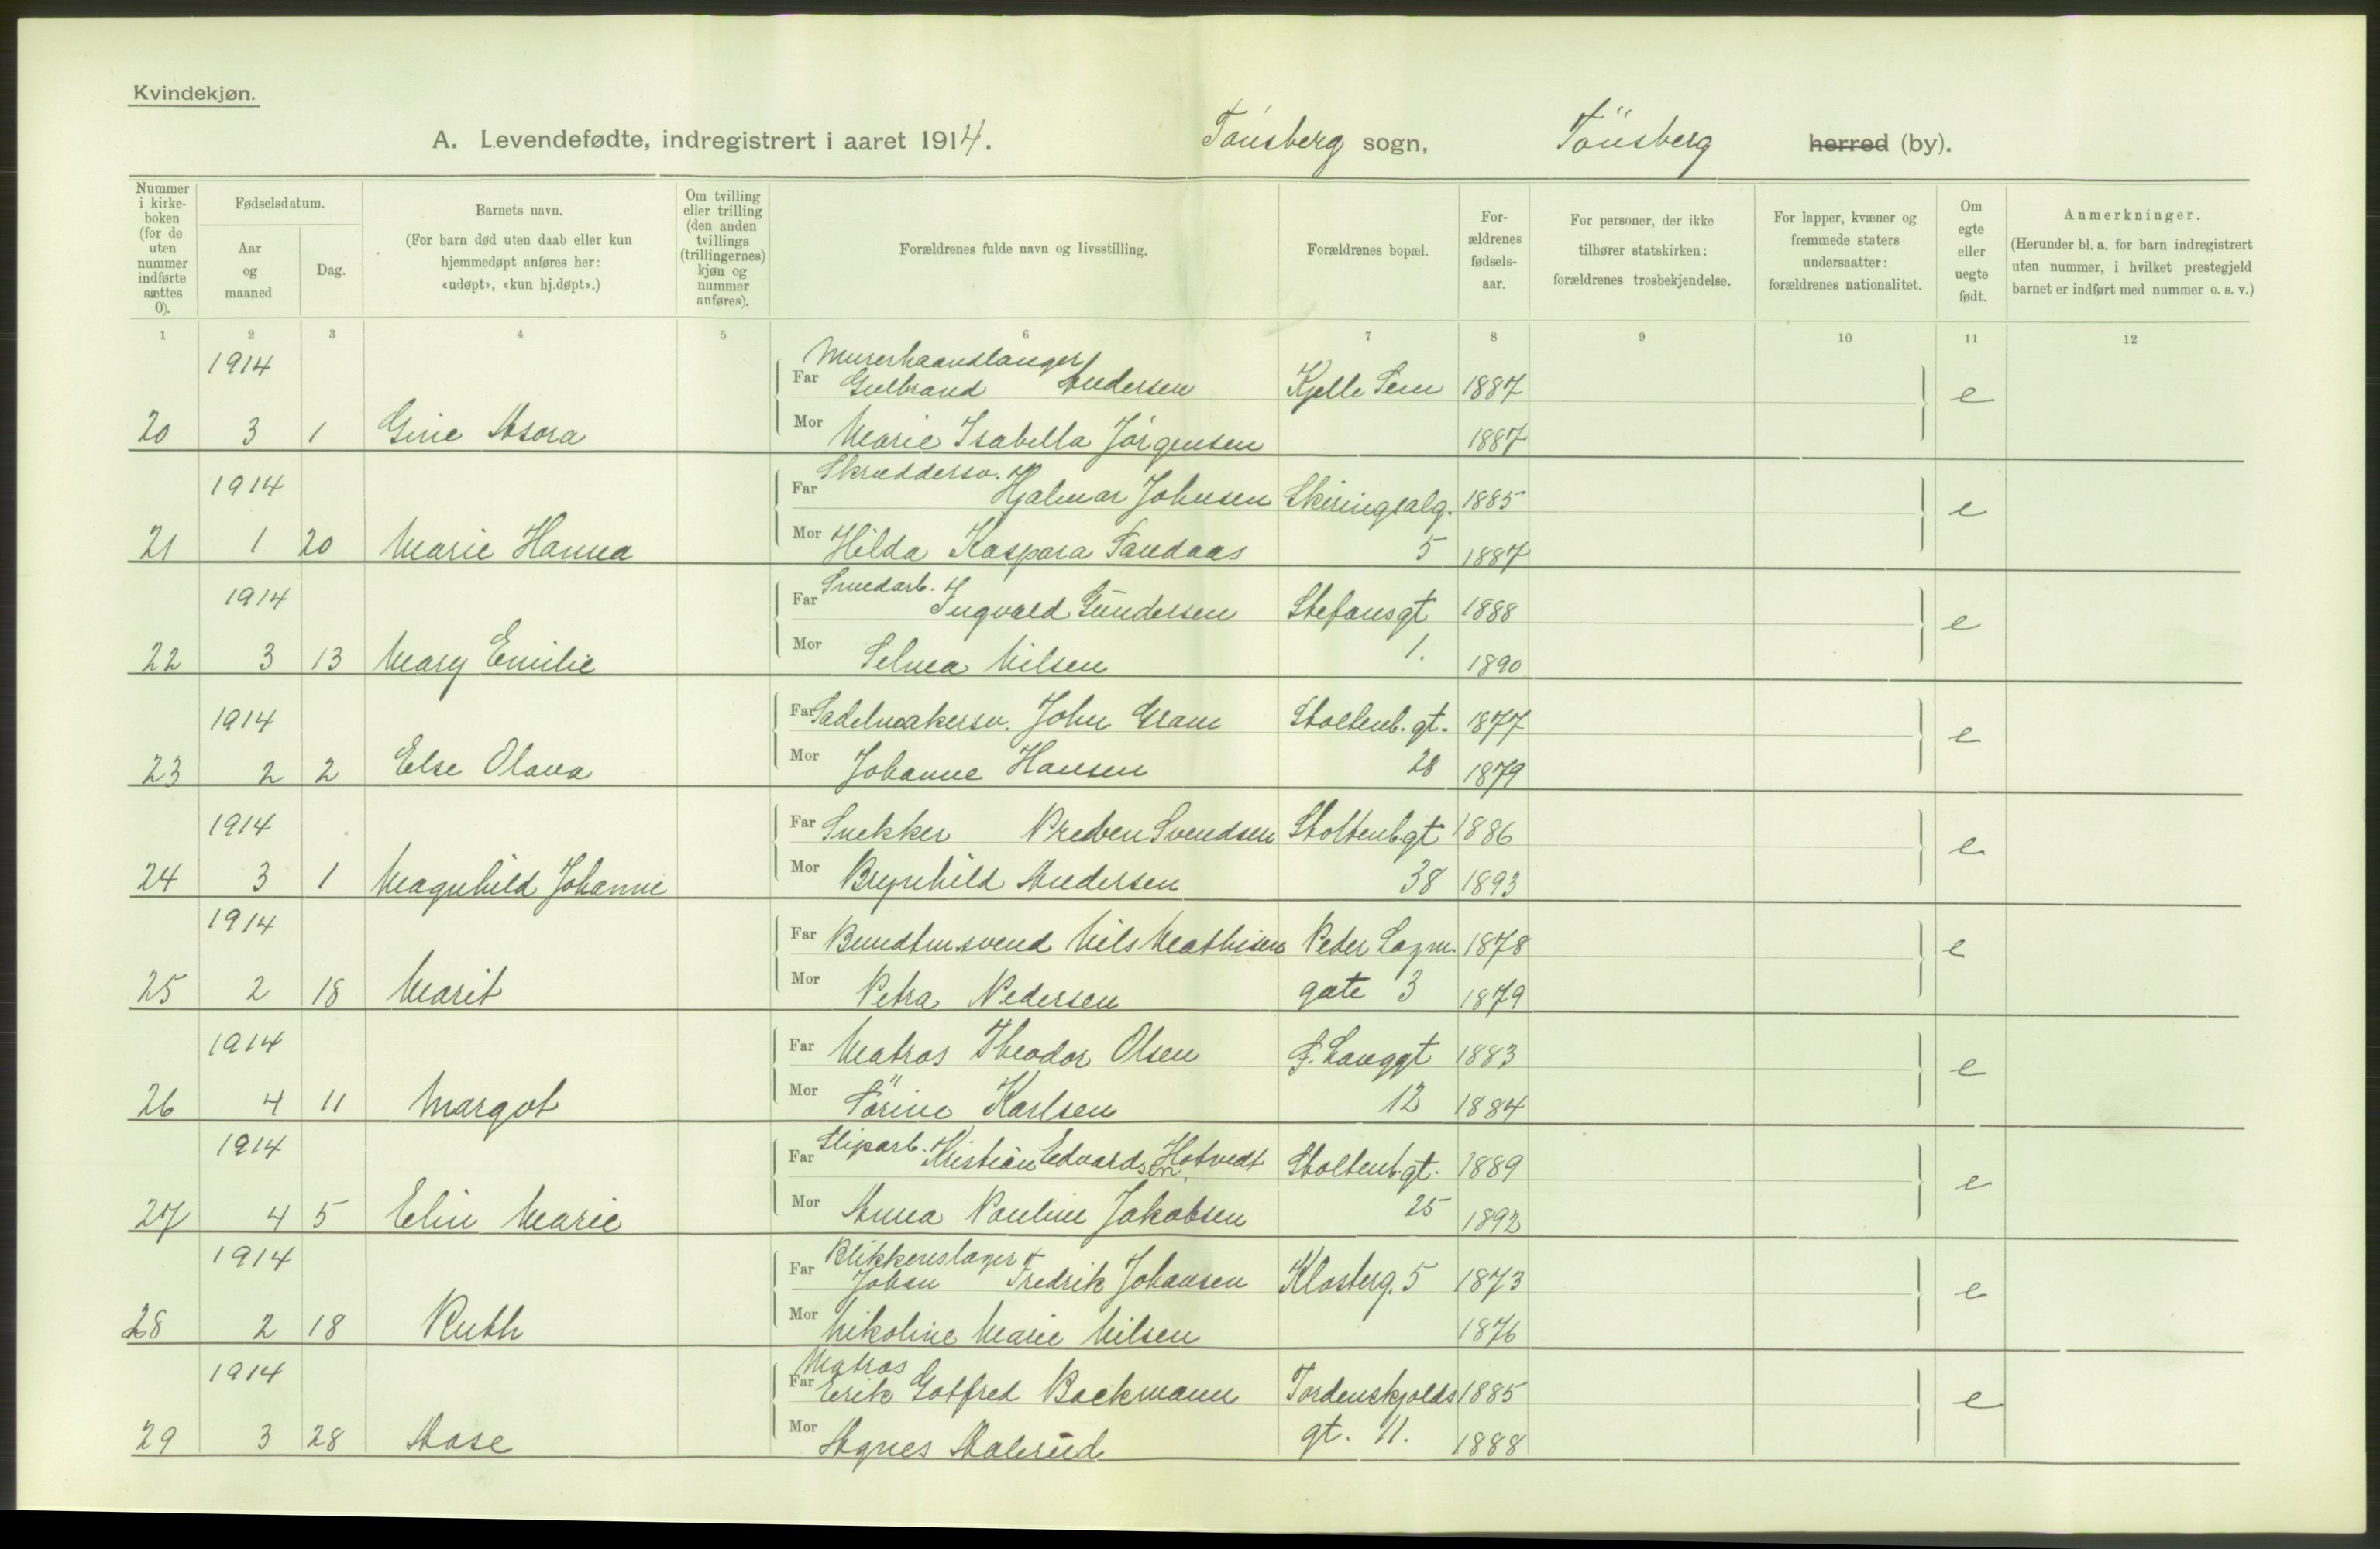 Kvindekjøn.
A. Levendefødte, indregistrert i aaret 1914. Tönsberg sogn, Tönsberg herred (by).
Nummer i kirke-boken (for de uten nummer indførte sættes 0).
Fødselsdatum.
Aar og maaned
Dag.
Barnets navn.
(For barn død uten daab eller kun hjemmedøpt anføres her: «udøpt», «kun hj.døpt».)
Om tvilling eller trilling (den anden tvillings (trillingernes) kjøn og nummer anføres).
Forældrenes fulde navn og livsstilling.
Forældrenes bopæl.
For-ældrenes fødsels-aar.
For personer, der ikke tilhører statskirken: forældrenes trosbekjendelse.
For lapper, kvæner og fremmede staters undersaatter: forældrenes nationalitet.
Om egte eller uegte født.
Anmerkninger.
(Herunder bl. a. for barn indregistrert uten nummer, i hvilket prestegjeld barnet er indført med nummer o. s. v.)
1 2 3 4 5 6 7 8 9 10 11 12
1914 Murerhaandlanger
Far Gulbrand Andersen Kjelle Sem 1887 e
20 3 1 Gine Asora Mor Marie Isabella Jörgensen 1887
Skræddersv.
1914 Far Hjalmar Johnsen Skiringsalg. 1885 e
21 1 20 Marie Hanna Mor Hilda Kaspara Sandaas 5 1887
Smedarb.
1914 Far Ingvald Gundersen Stefansgt 1888 e
22 3 13 Mary Emilie Mor Selma Nilsen 1. 1890
1914 Far Sadelmakersv. John Gram Stoltenb. gt. 1877 e
23 2 2 Else Olava Mor Johanne Hansen 28 1879
1914 Far Snekker Preben Svendsen Stoltenb.gt 1886 e
24 3 1 Magnhild Johanne Mor Brynhild Andersen 38 1893
1914 Far Bundtm.svend Nils Mathisen Peder Lagm. 1878 e
25 2 18 Marit Mor Petra Pedersen gate 3 1879
1914 Far Matros Theodor Olsen S. Langgt 1883 e
26 4 11 Margot Mor Sörine Karlsen 12 1884
Sliparb.
1914 Far Kristian Edvardsen Hotvedt Stoltenb.gt. 1889 e
27 4 5 Elin Marie Mor Anna Pauline Jakobsen 25 1892
1914 Blikkenslager
Far Johan Fredrik Johansen Klosterg. 5 1873 e
28 2 18 Ruth Mor Nikoline Marie Nilsen 1876
Matros
1914 Far Erik Gotfred Backmann Tordenskjolds 1885 e
29 3 28 Aase Mor Agnes Aalerud gt. 11. 1888